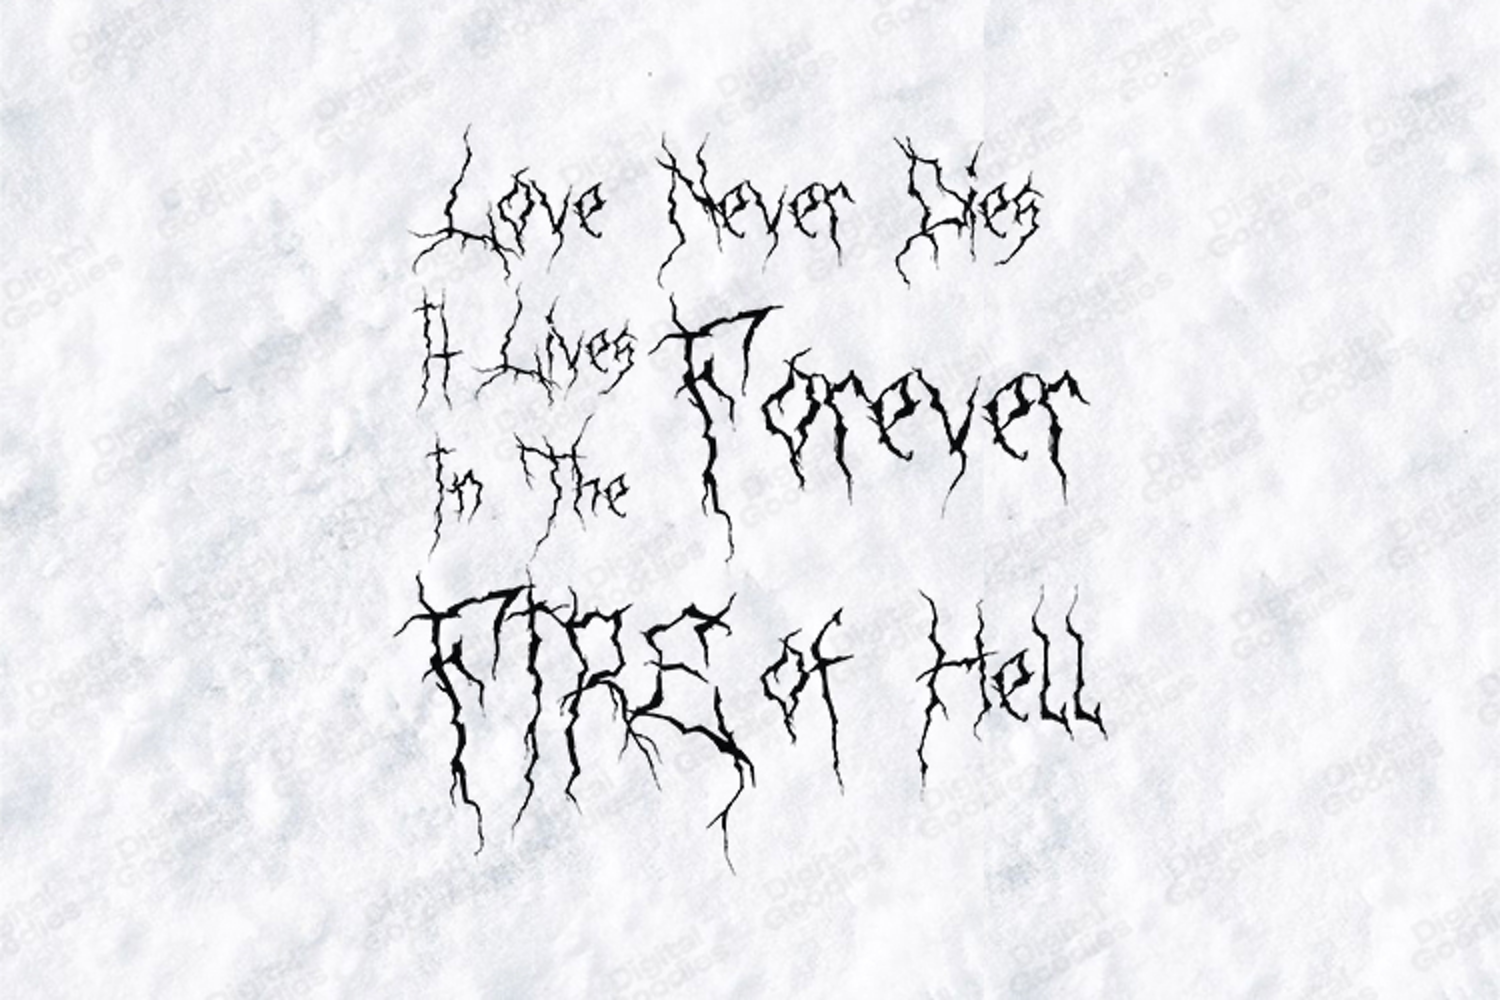 Love Never Dies
It Lives Forever
In The
FIRE of Hell
Digital Goodies